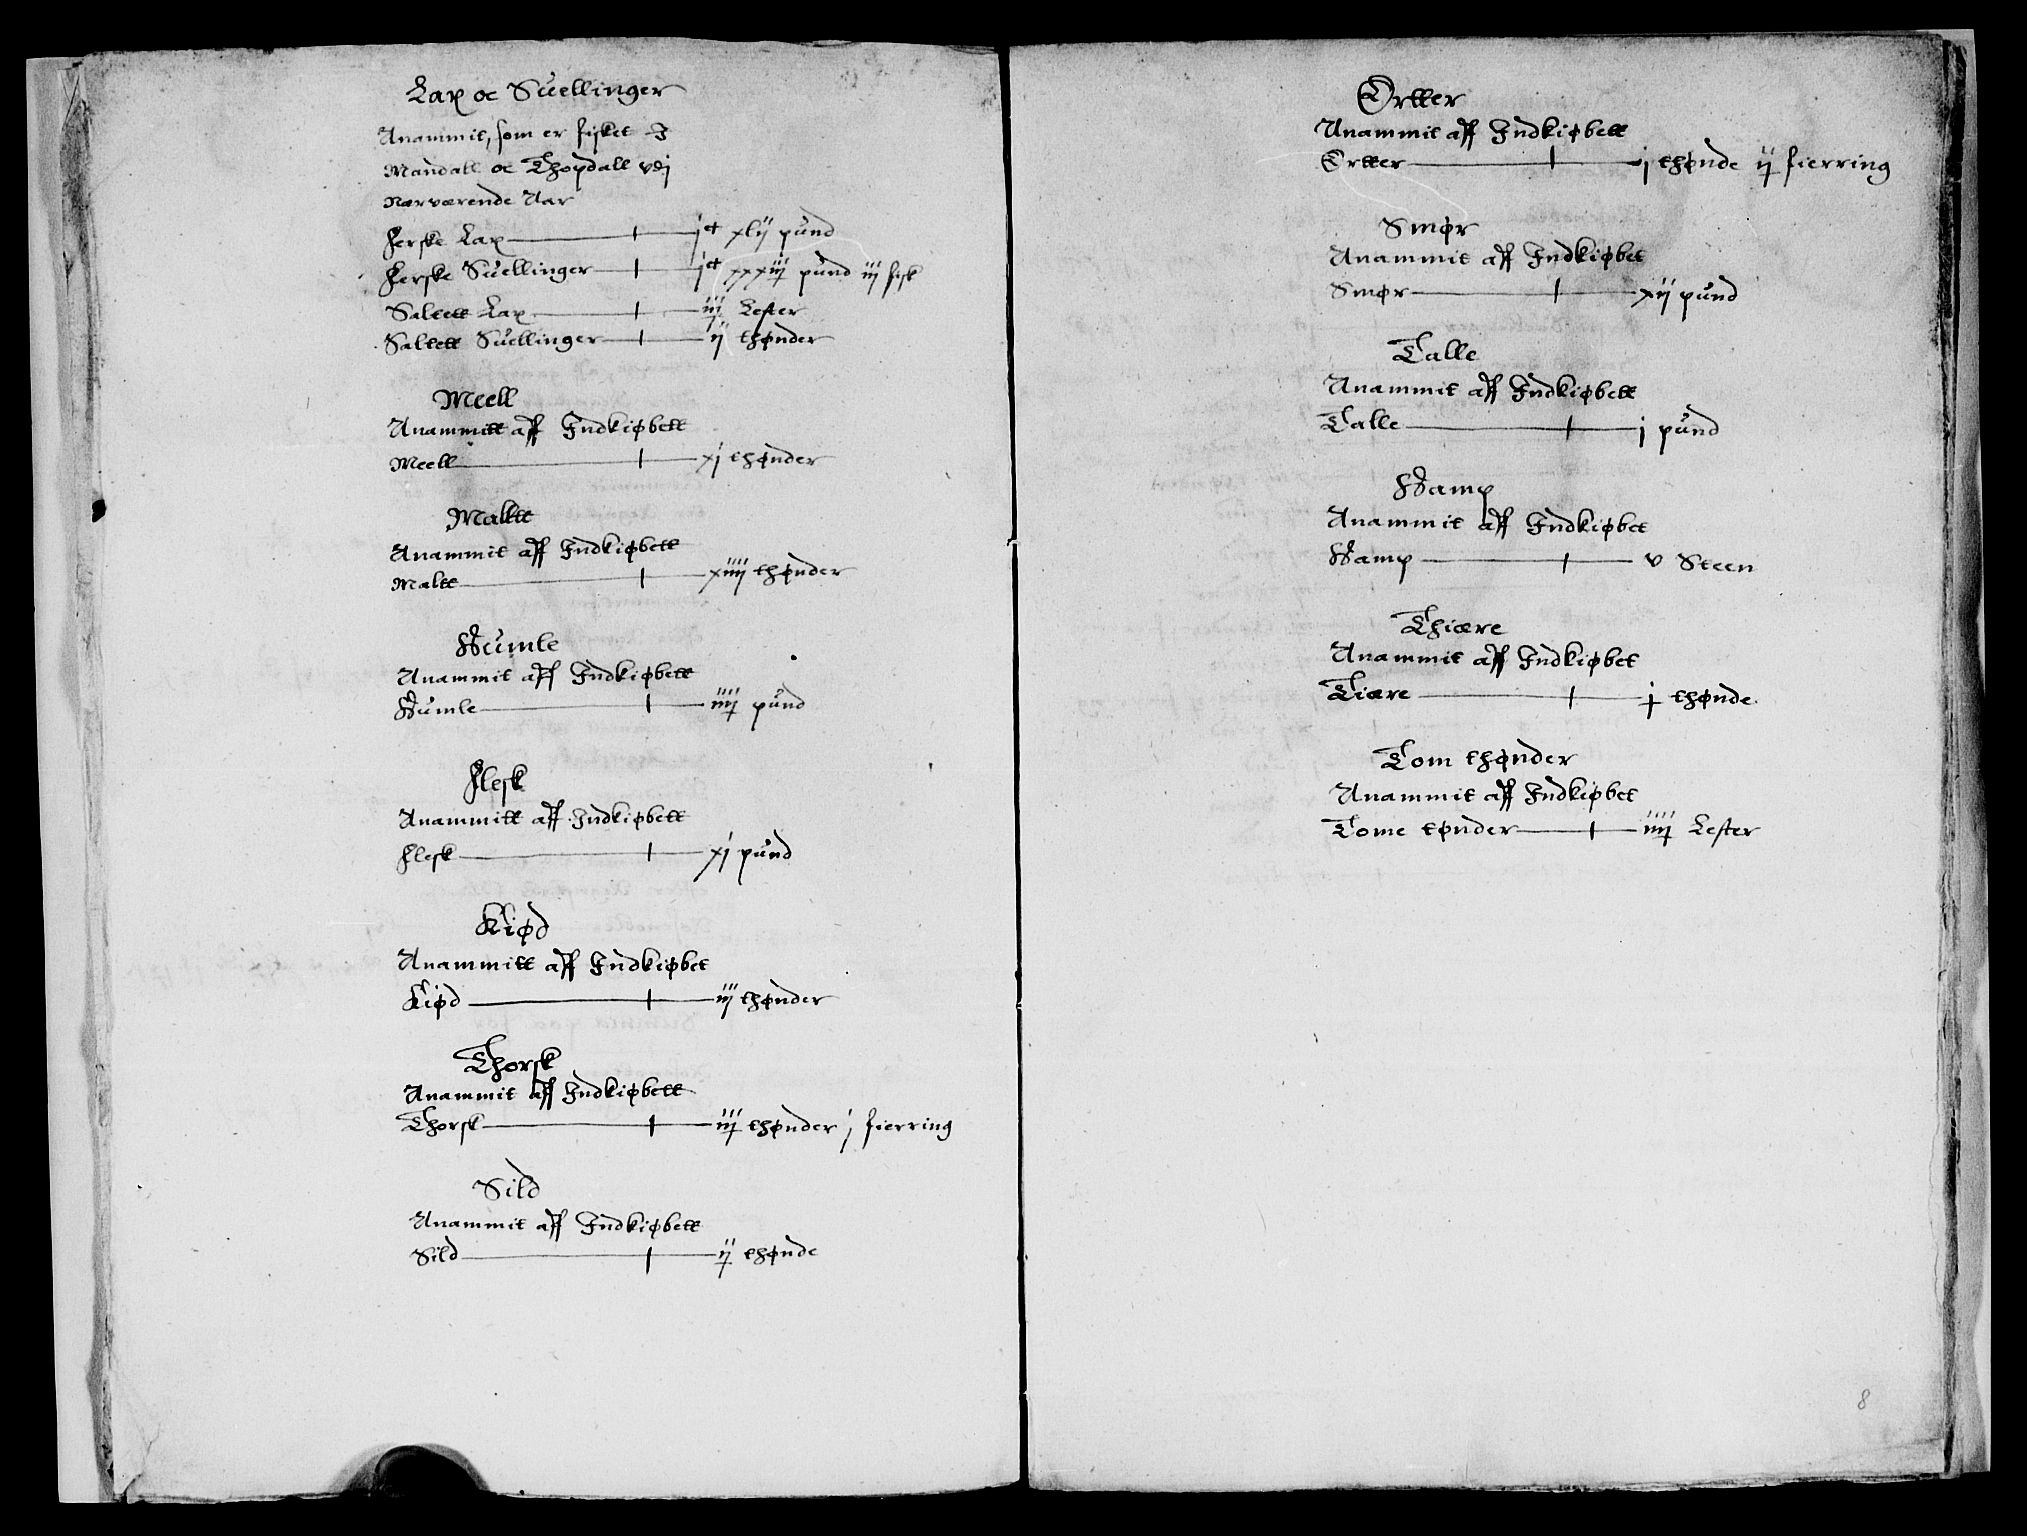 Lax oc Suellinger
Anammit, som er fisket I
Mandall oc Thopdall vdj
Nærværende Aar
Ferske Lax jct xlij pund
Ferske Suellinger jct xxxiij pund iij fisk
Saltett Lax iij Lester
Saltett Suellinger ij thønder
Meell
Anammitt aff Indkiøbett
Meell xj thønder
Maltt
Anammit aff Indkiøbett
Maltt xiiij thønder
Humle
Anammit aff Indkiøbett
Humle iiij pund
Flesk
Anammitt aff Indkiøbett
Flesk xj pund
Kiød
Anammitt aff Indkiøbet
Kiød iij thønder
Thorsk
Anammit aff Indkiøbett
Thorsk iij thønder j fierring
Sild
Anammit aff Indkiøbett
Sild ij thønde
Ertter
Anammit aff Indkiøbett
Ertter j thønde ij fierring
Smør
Anammit aff Indkiøbet
Smør xij pund
Talle
Anammit aff Indkiøbett
Talle j pund
Hamp
Anammit aff Indkiøbet
Hamp v Steen
Thiære
Anammit aff Indkiøbet
Tiære j thønde
Tom thønder
Anammit aff Indkiøbet
Tome tønder iiij Lester
8